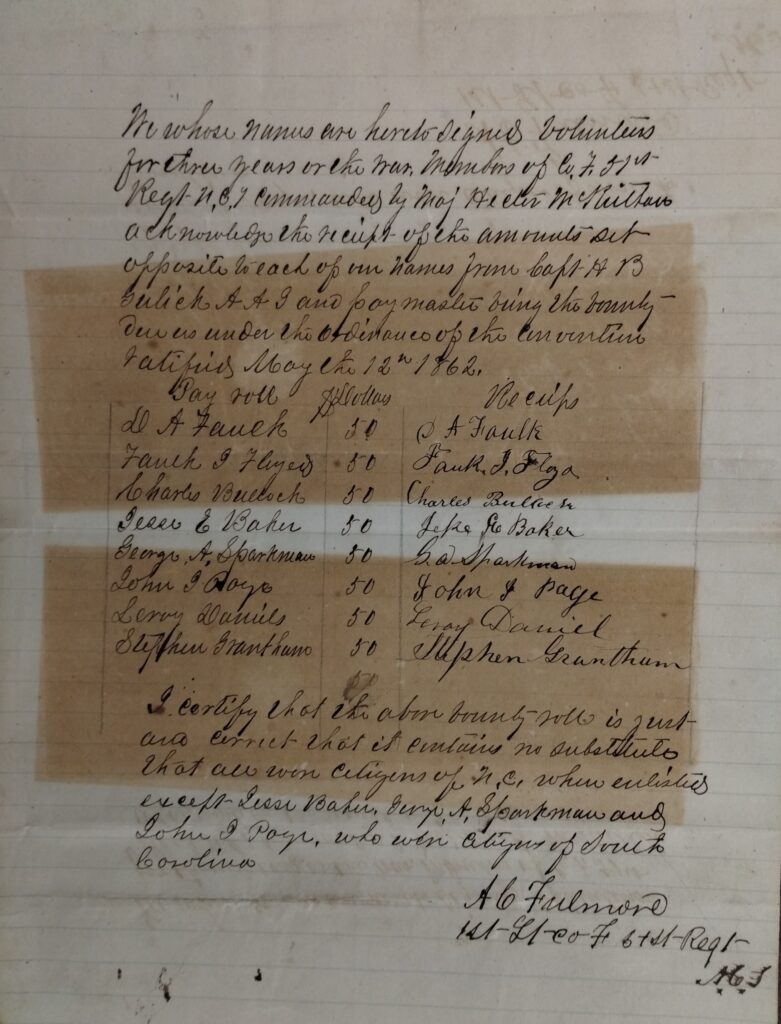 We whose names are hereto signed Volunteers
for three years or the war, Members of Co, F. 51st
Regt N,C,T Commanded by Maj Hector McKethan
acknowledge the reciept of the amounts set
opposite to each of our names from Capt H B
Gulick A A G and paymaster being the bounty
due us under the ordinance of the convention
ratified May the 12th 1862.
Pay roll Dollars Reciepts
D A Faulk 50 D A Faulk
Faulk J Floyd 50 Faulk, J, Floyd
Charles Bullock 50 Charles Bullock
Jesse E Baker 50 Jesse E Baker
George, A, Sparkman 50 G. A. Sparkman
John J Page 50 John J Page
Leroy Daniels 50 Leroy Daniel
Stephen Grantham 50 Stephen Grantham
50
I certify that the above bounty roll is just
and correct that it contains no substitute
that all were citizens of N,C, when enlisted
except Jesse Baker, George, A, Sparkman and
John J Page, who were citizens of South
Carolina
A C Fulmore
1st Lt Co F 51st Regt